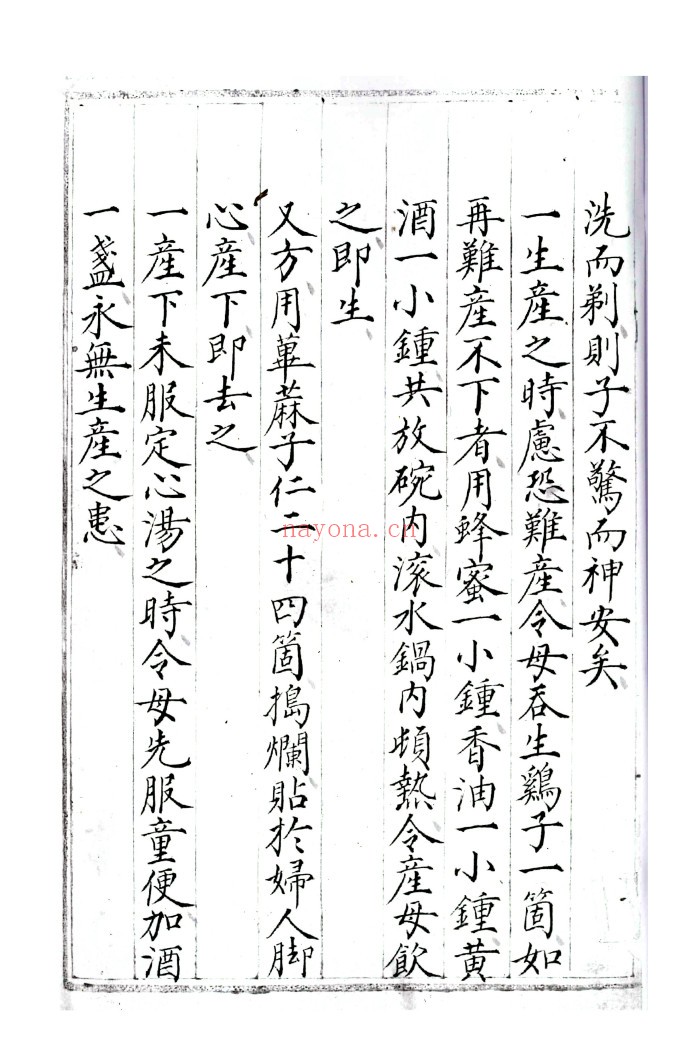 洗而剃則子不驚而神安矣
一生産之時慮恐難産令母吞生鷄子一箇如
再難産不下者用蜂蜜一小鍾香油一小鍾黄
酒一小鍾共放碗内滚水鍋内頓熱令産母飲
之即生
又方用萆蔴子仁二十四箇搗爛貼於婦人脚
心産下即去之
一産下未服定心湯之時令母先服童便加酒
一盞永無生産之患
nayona.cn